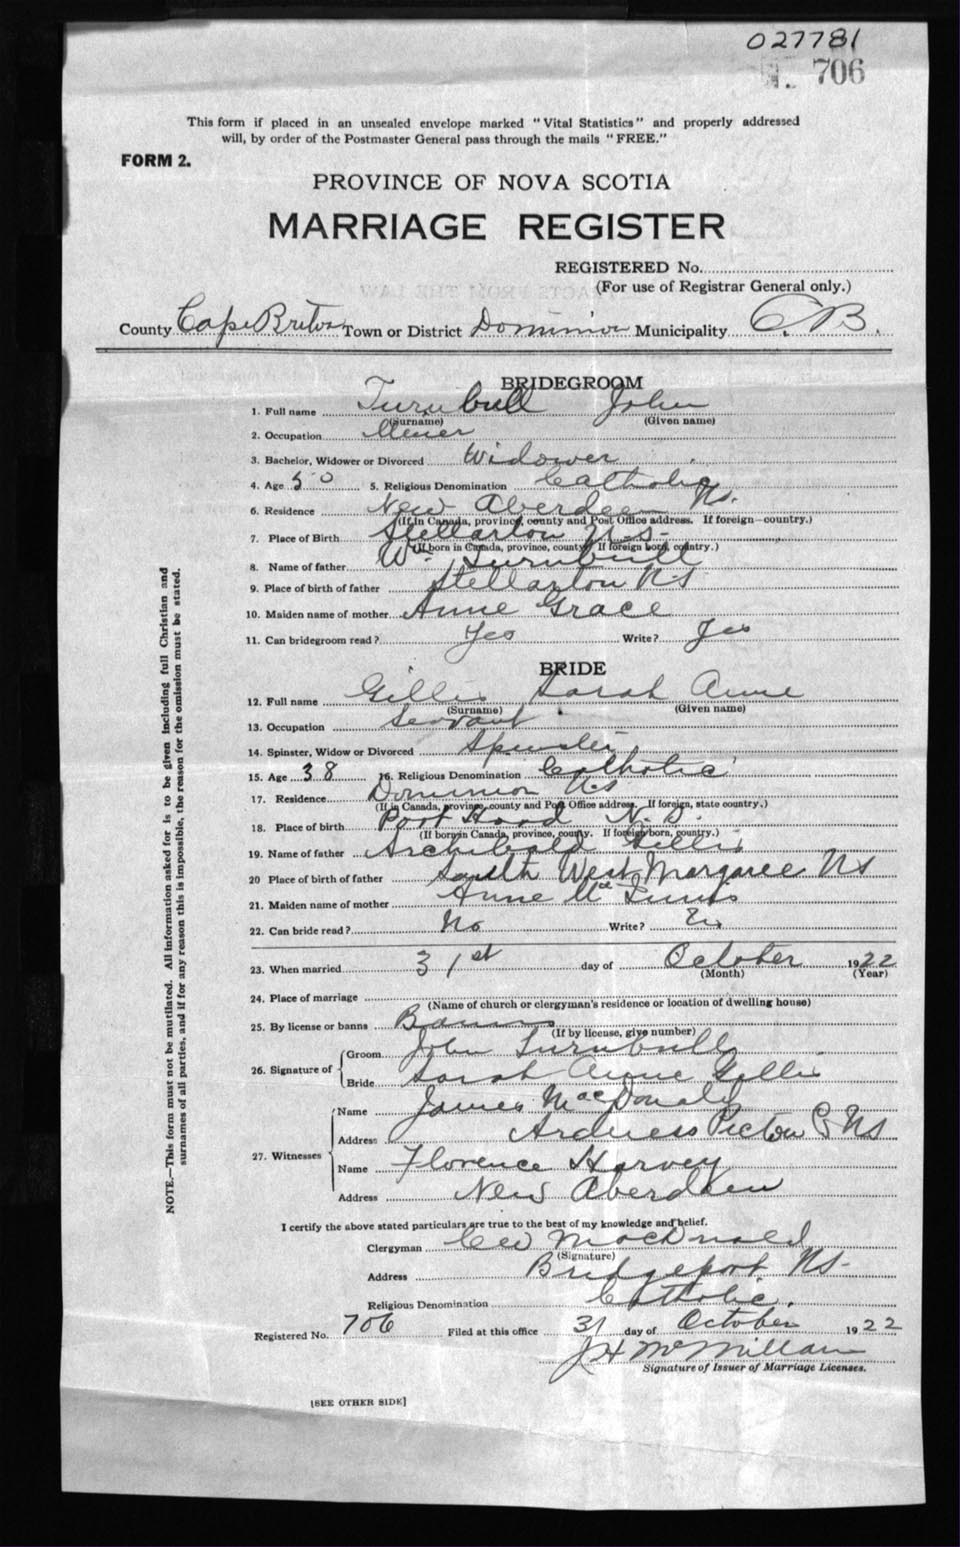 027781
706
This form if placed in an unsealed envelope marked "Vital Statistics" and properly addressed
will, by order of the Postmaster General pass through the mails "FREE."
FORM 2.
PROVINCE OF NOVA SCOTIA
MARRIAGE REGISTER
REGISTERED No.
(For use of Registrar General only.)
County Cape Breton Town or District Dominion Municipality C.B.
BRIDEGROOM
1. Full name Turnbull John
(Surname) (Given name)
2. Occupation Miner
3. Bachelor, Widower or Divorced Widower
4. Age 50 5. Religious Denomination Catholic
6. Residence New Aberdeen Ns.
(If in Canada, province, county and Post Office address. If foreign—country.)
7. Place of Birth Stellarton N.S.
(If born in Canada, province, county. If foreign born, country.)
8. Name of father Wm Turnbull
9. Place of birth of father Stellarton NS
10. Maiden name of mother Anne Grace
11. Can bridegroom read? Yes Write? Yes
BRIDE
12. Full name Gillis Sarah Anne
(Surname) (Given name)
13. Occupation Servant
14. Spinster, Widow or Divorced Spinster
15. Age 38 16. Religious Denomination Catholic
17. Residence Dominion Ns
(If in Canada, province, county and Post Office address. If foreign, state country.)
18. Place of birth Port Hood N.S.
(If born in Canada, province, county. If foreign born, country.)
19. Name of father Archibald Gillis
20 Place of birth of father South West Margaree NS
21. Maiden name of mother Anne
22. Can bride read? No Write?
23. When married 31st day of October 1922
(Month) (Year)
24. Place of marriage
(Name of church or clergyman's residence or location of dwelling house)
25. By license or banns Banns
(If by license, give number)
26. Signature of
Groom John Turnbull
Bride Sarah Anne Gillis
27. Witnesses
Name James MacDonald
Address Pictou Co NS
Name Florence Harvey
Address New Aberdeen
I certify the above stated particulars are true to the best of my knowledge and belief.
Clergyman MacDonald
(Signature)
Address Bridgeport NS
Religious Denomination Catholic.
Registered No. 706 Filed at this office 31 day of October 1922
J H McMillan
Signature of Issuer of Marriage Licenses.
[SEE OTHER SIDE]
NOTE.—This form must not be mutilated. All information asked for is to be given including full Christian and
surnames of all parties, and if for any reason this is impossible, the reason for the omission must be stated.